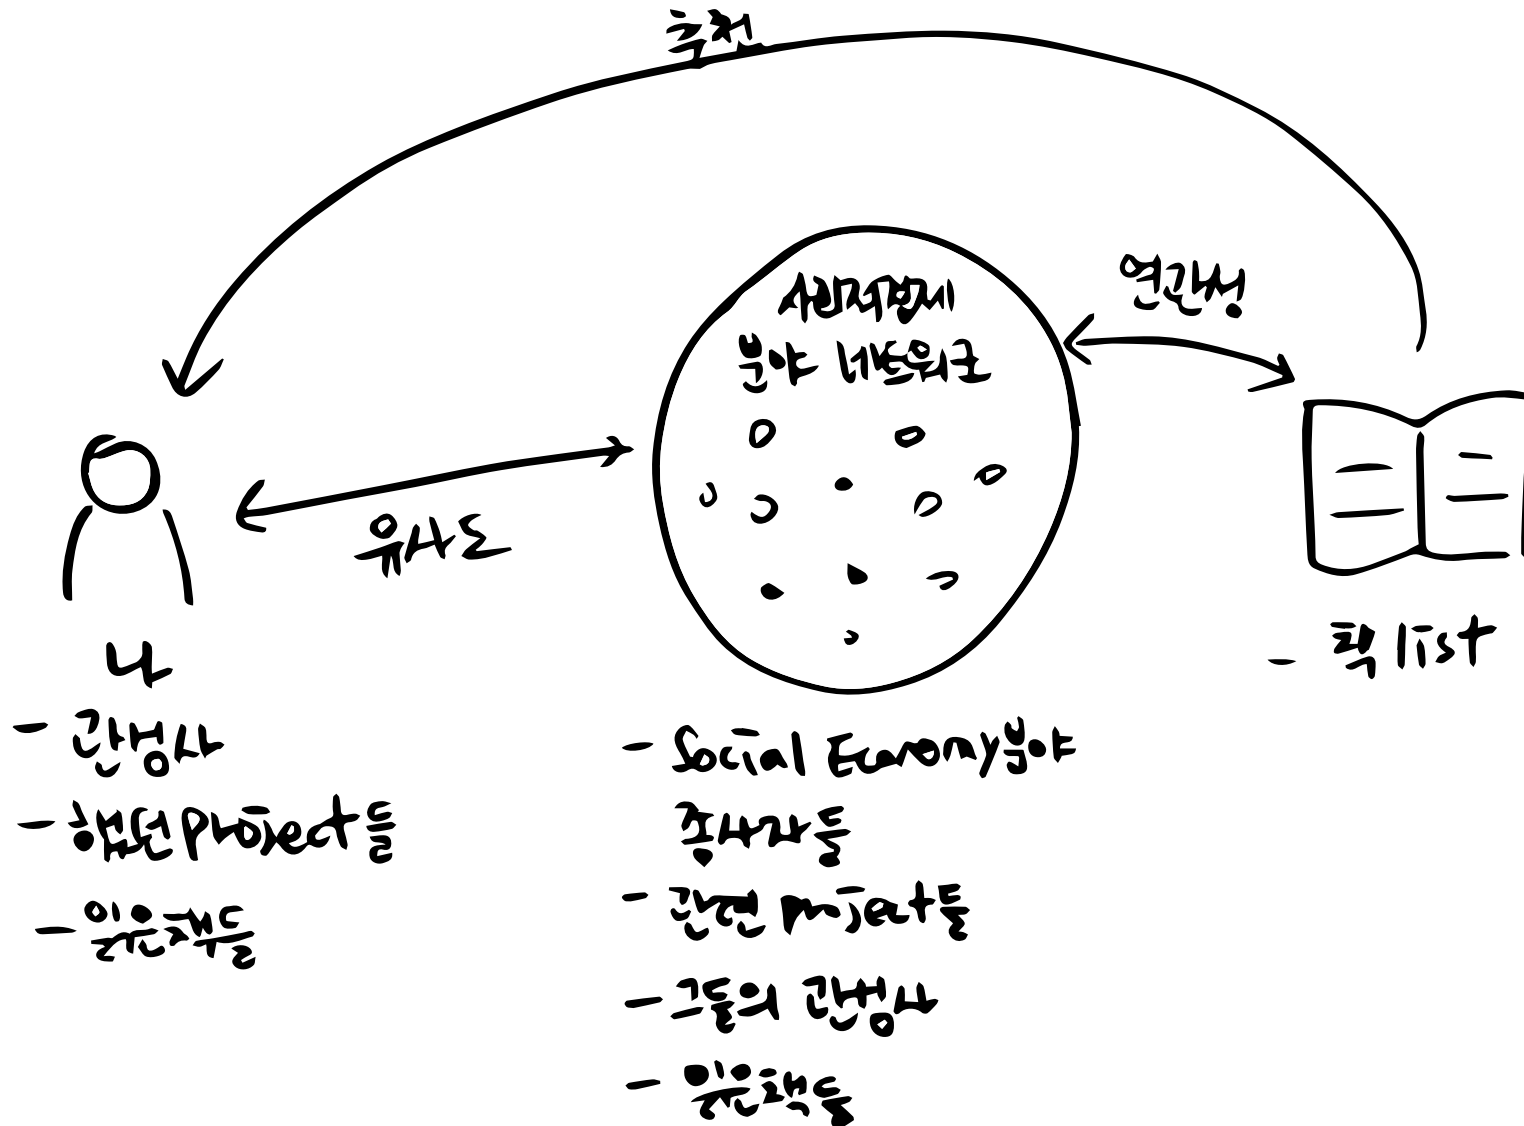 추천
사회적경제
분야 네트워크
연관성
유사도
나
- 관심사
- 했던 project들
- 읽은책들
- Social Economy분야
종사자들
- 관련 project들
- 그들의 관심사
- 읽은책들
- 책 list